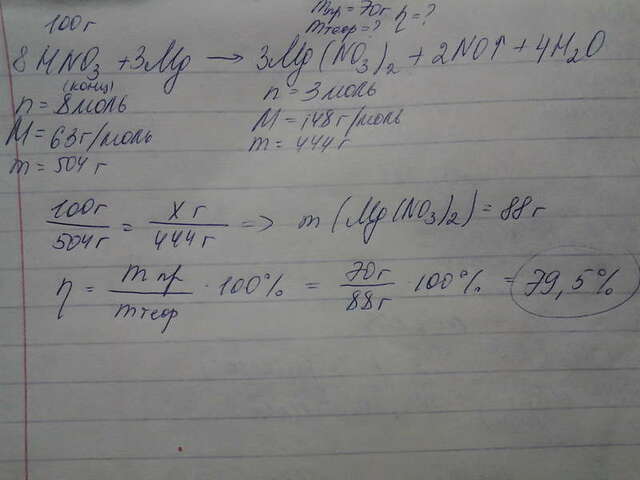 100г mпр=70г η=?
mтеор=?
8HNO₃ +3Mg → 3Mg(NO₃)₂ + 2NO↑ + 4H₂O
(конц)
n = 8моль n = 3моль
M = 63г/моль M = 148г/моль
m = 504г m = 444г
100г/504г = Xг/444г => m(Mg(NO₃)₂) = 88г
η = mпр/mтеор · 100% = 70г/88г · 100% = 79,5%